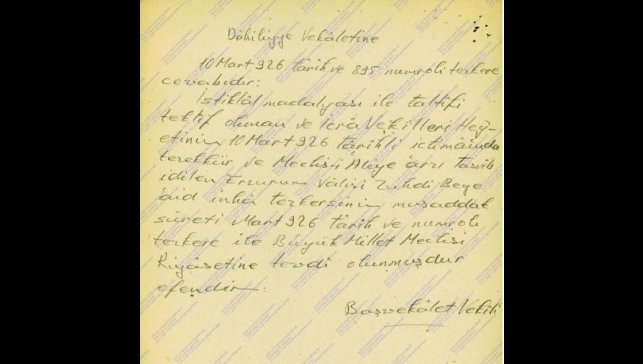 Dâhiliyye Vekâletine
10 Mart 926 târih ve 895 numrolı tezkere
cevabıdır:
İstiklâl madalyası ile taltîfi
teklîf olunan ve İcrâ Vekîlleri Hey-
etinin 10 Mart 926 târihli ictimâında
tezekkür ve Meclis-i Âliye arzı tasvîb
idilen Erzurum Vâlisi Zühdi Beye
âid inhâ tezkeresinin musaddak
sûreti Mart 926 târih ve numrolı
tezkere ile Büyük Millet Meclisi
Riyâsetine tevdî olunmuşdur
efendim.
Başvekâlet Vekîli